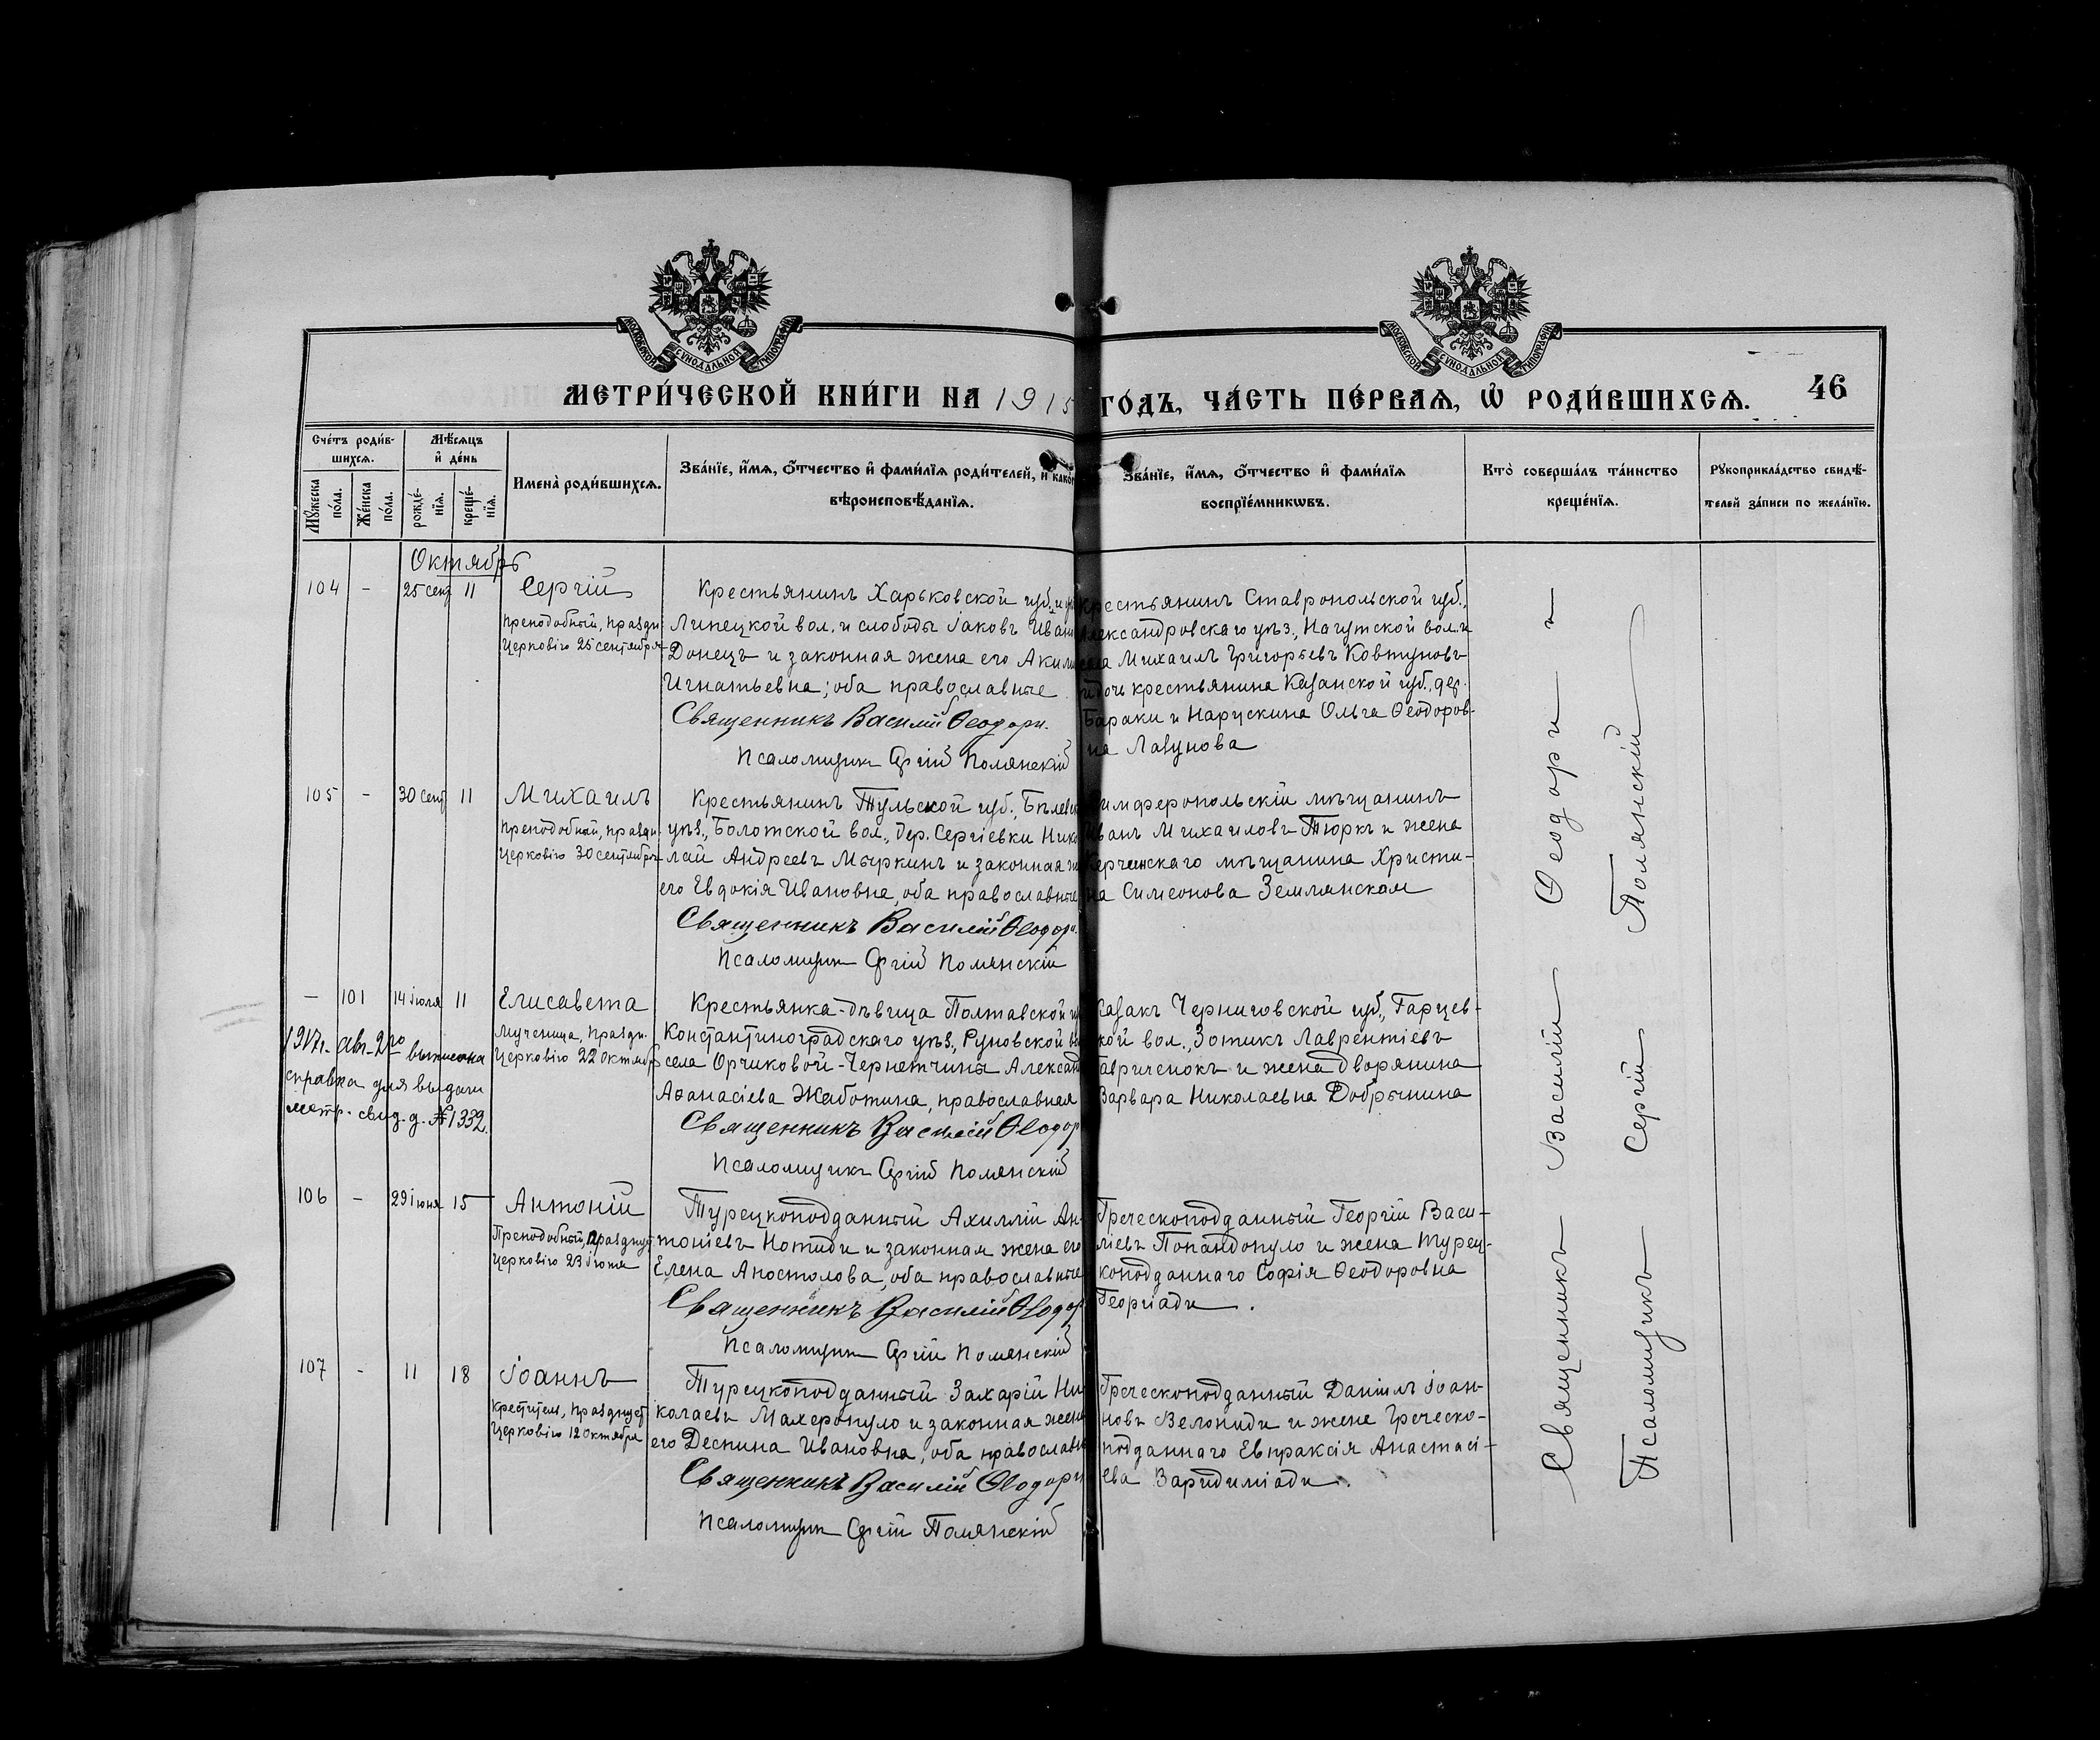 МОСКОВСКОЙ СѴНОДАЛЬНОЙ ТИПОГРАФІИ
МОСКОВСКОЙ СѴНОДАЛЬНОЙ ТИПОГРАФІИ
МЕТРИ́ЧЕСКОЙ КНИ́ГИ НА 1915 ГО́ДЪ, ЧА́СТЬ ПЕ́РВАѦ, Ѡ҆ РОДИ́ВШИХСѦ. 46
Сче́тъ роди́в-
шихсѧ.
Мꙋ́жеска по́ла.
Же́нска по́ла.
Мѣ́сѧцъ
и҆ де́нь
рожде́-
нїѧ.
креще́-
нїѧ.
Имена̀ роди́вшихсѧ.
Зва́нїе, и҆́мѧ, ѻ҆́тчество и҆ фами́лїѧ роди́телей, и҆ како́гѡ
вѣроисповѣ́данїѧ.
Зва́нїе, и҆́мѧ, ѻ҆́тчество и҆ фами́лїѧ
воспрїе́мникѡвъ.
Кто̀ соверша́лъ та́инство
креще́нїѧ.
Рꙋкоприкла́дство свидѣ́-
телей за́писи по жела́нїю.
Октябрь
104 - 25 сент 11 Сергій
Преподобный, праздн.
Церковію 25 сентября
Крестьянинъ Харьковской губ. и
Липецкой вол. и слободы Іаковъ Иван
Донецъ и законная жена его Акили
Игнатьевна; оба православные
Священникъ Василій Ѳеодори.
Псаломщикъ Сергій Полянскій
Крестьянинъ Ставропольской губ.,
Александровскаго уѣз., Нагутской вол. и
села Михаилъ Григорьевъ Ковтуновъ
и дочь крестьянина Казанской губ., дер.
Бараки и Нарускина Ольга Ѳеодоров-
на Лагунова
105 - 30 сент 11 Михаилъ
Преподобный, праздн.
Церковію 30 сентября
Крестьянинъ Тульской губ., Бѣлевск
уѣз., Болотской вол., дер. Сергіевки Нико
лай Андреевъ Мыркинъ и законная ж
его Евдокія Ивановна, оба православные
Священникъ Василій Ѳеодори.
Псаломщикъ Сергій Полянскій
Симферопольскій мѣщанинъ
Иванъ Михаиловъ Тюркъ и жена
Керченскаго мѣщанина Христи-
на Симеонова Землянская
- 101 14 Іюля 11 Елисавета
Мученица, праздн.
Церковію 22 Октября
1917 г. авг. 2го выписана
справка для выдачи
метр. свид. д. № 1332.
Крестьянка-дѣвица Полтавской гу
Константиноградскаго уѣз., Руновской во
села Орчиковой-Чернетчины Александ
Аѳанасіева Жаботина, православная
Священникъ Василій Ѳеодор
Псаломщикъ Сергій Полянскій
Казакъ Черниговской губ., Гарцев-
кой вол., Зотикъ Лаврентіевъ
Гавриченокъ и жена дворянина
Варвара Николаевна Добрынина
106 - 29 Іюня 15 Антоній
Преподобный, празднует
Церковію 23 Іюня
Турецкоподданный Ахиллій Ан-
тоніевъ Нотиди и законная жена его
Елена Апостолова, оба православные
Священникъ Василій Ѳеодор
Псаломщикъ Сергій Полянскій
Греческоподданный Георгій Васи-
ліевъ Попандопуло и жена турец-
коподданнаго Софія Ѳеодоровна
Георгіади.
107 - 11 18 Іоаннъ
Креститель, празднует
Церковію 12 октября
Турецкоподданный Захарій Ни
колаевъ Махеропуло и законная жена
его Деспина Ивановна, оба православн
Священникъ Василій Ѳеодори
Псаломщикъ Сергій Полянскій
Греческоподданный Даніилъ Іоан-
новъ Велониди и жена греческо-
подданнаго Евпраксія Анастасі-
ева Варидиміади.
Священникъ Василій Ѳеодори
Псаломщикъ Сергій Полянскій